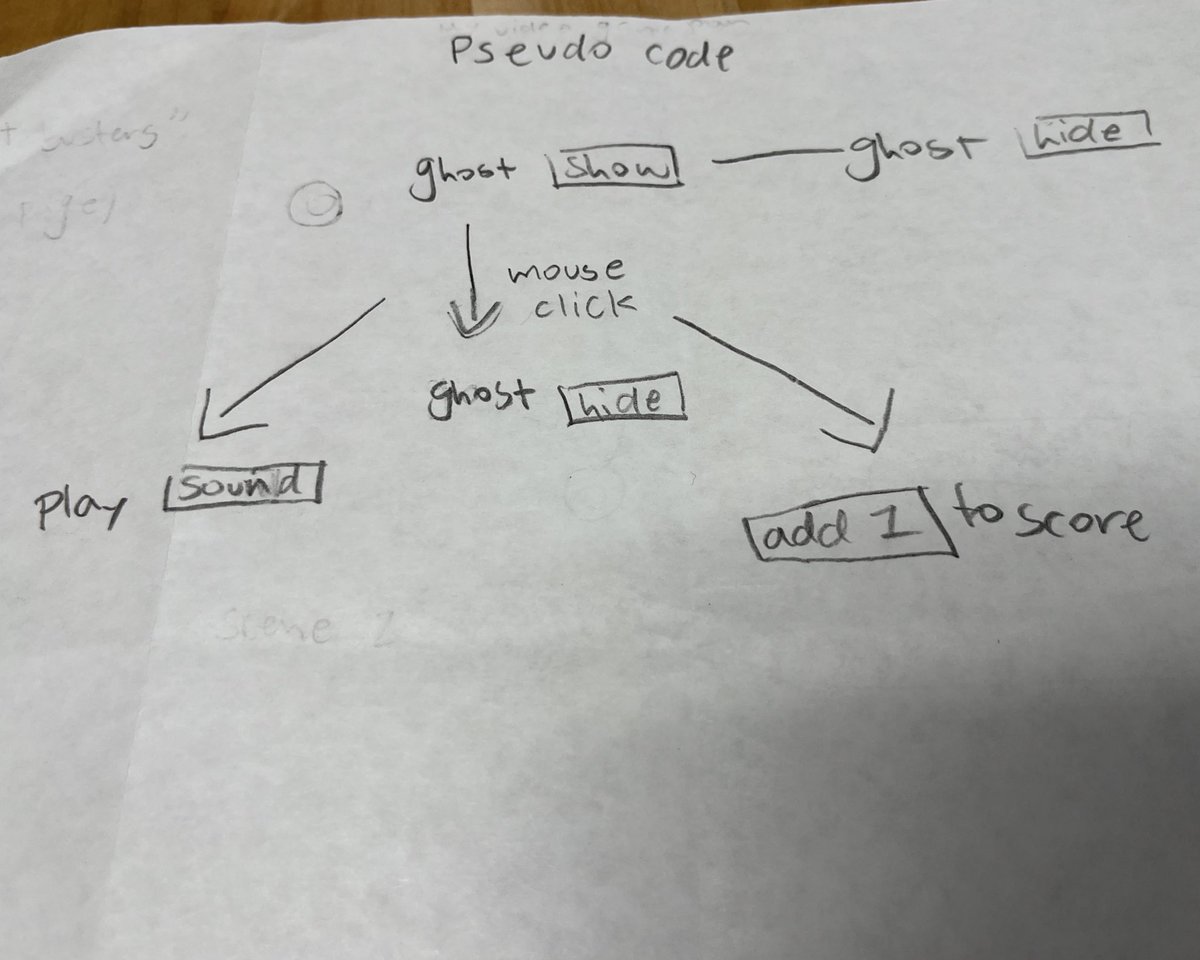 Pseudo code
ghost show ghost hide
mouse
click
ghost hide
play sound
add 1 to score
busters"
Scene 2